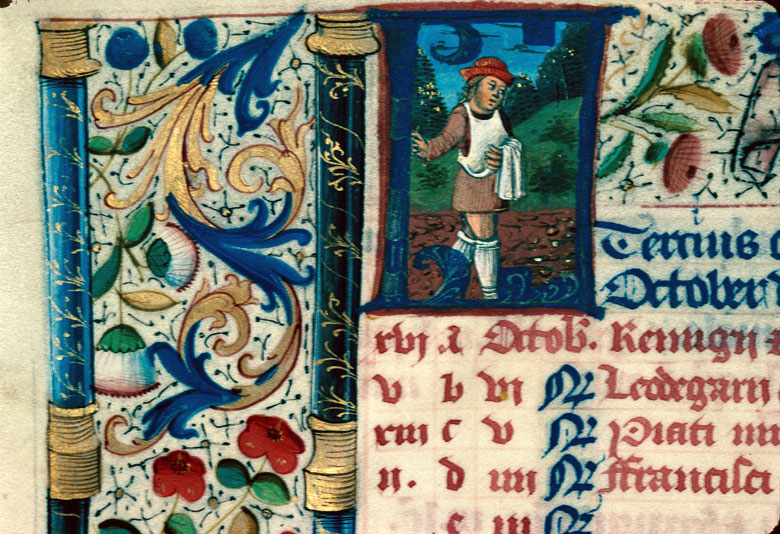 Tercius
October
xvj A Octob. Remigij
v b vi N Leodegarij
xiii c v N Piati
ii. d iiii N Francisci
e iii N